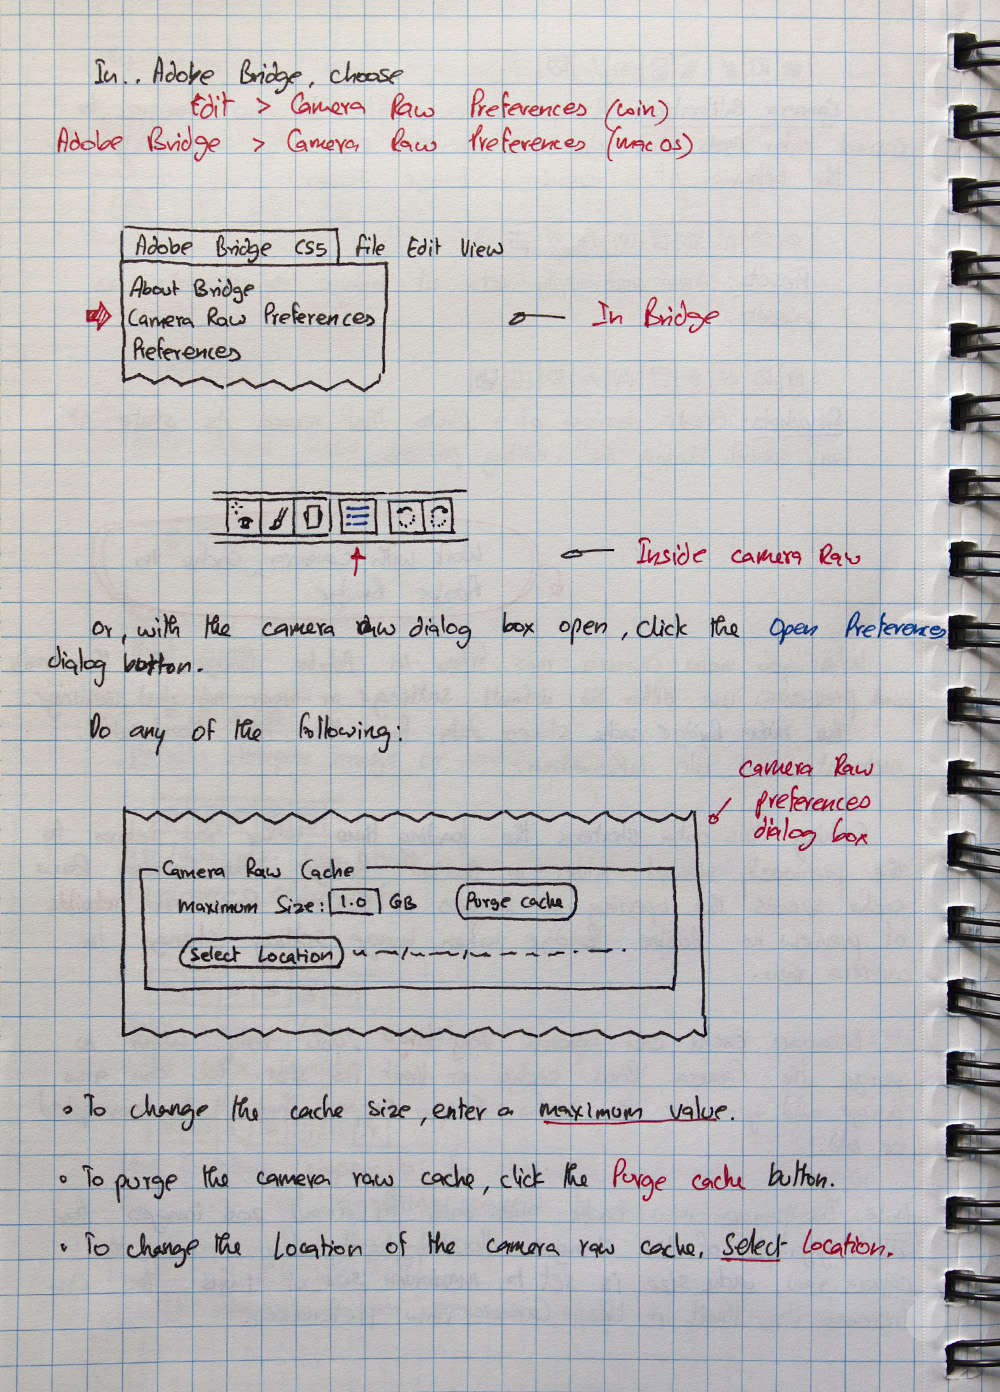 In.. Adobe Bridge, choose
Edit > Camera Raw Preferences (win)
Adobe Bridge > Camera Raw Preferences (mac os)
Adobe Bridge CS5 File Edit View
About Bridge
Camera Raw Preferences
Preferences
In Bridge
Inside camera Raw
or, with the camera raw dialog box open, click the Open Preferences
dialog button.
Do any of the following:
camera Raw
preferences
dialog box
Camera Raw Cache
Maximum Size: 1.0 GB Purge cache
Select Location
• To change the cache size, enter a maximum value.
• To purge the camera raw cache, click the Purge cache button.
• To change the Location of the camera raw cache, Select Location.